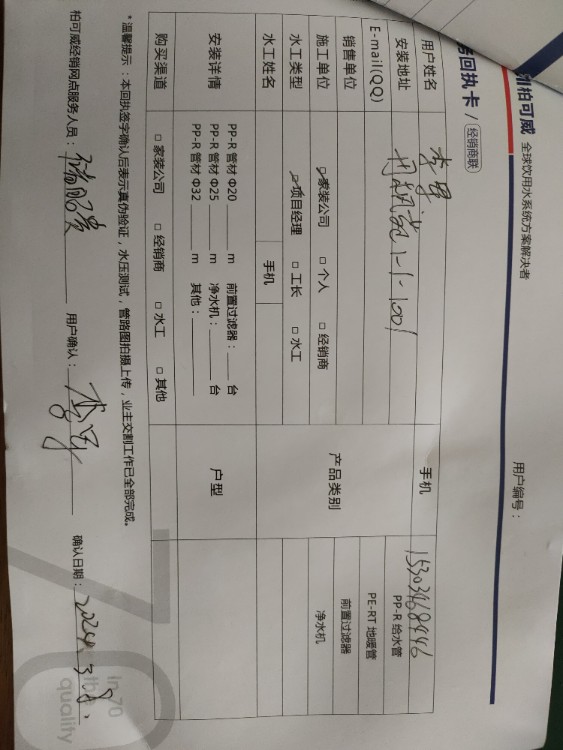 柏可威 全球饮用水系统方案解决者
回执卡 / 经销商联
用户编号：
用户姓名 李军 手机 15303468446
安装地址 1-1-1001
E-mail(QQ)
销售单位
产品类别
PP-R 给水管
PE-RT 地暖管
前置过滤器
净水机
施工单位 ☑家装公司 □ 个人 □ 经销商
水工类型 ☑项目经理 □ 工长 □ 水工
水工姓名 手机
安装详情
PP-R 管材 Φ20 ____ m 前置过滤器：____ 台
PP-R 管材 Φ25 ____ m 净水机：____ 台
PP-R 管材 Φ32 ____ m 其他：____
户型
购买渠道 □ 家装公司 □ 经销商 □ 水工 □ 其他
*温馨提示：本回执签字确认后表示真伪验证，水压测试，管路图拍摄上传，业主交割工作已全部完成。
柏可威经销网点服务人员： 用户确认：李军 确认日期：2024.3.8.
70
in 70
the
quality